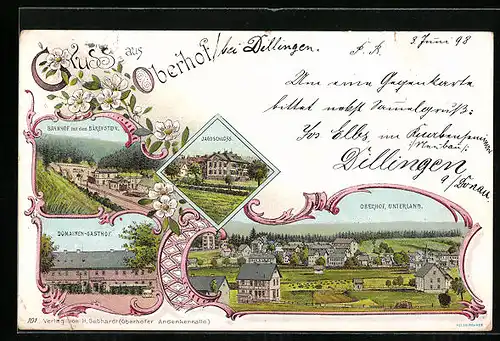 Gruss aus
Oberhof / bei Dillingen.
3 Juni 98
Um eine Gegenkarte
bittet nebst Sammelgruß:
Jos
Dillingen
a/Donau
BAHNHOF MIT DEM BÄRENSTEIN.
JAGDSCHLOSS.
DOMAINEN-GASTHOF.
OBERHOF, UNTERLAND.
101 Verlag von H. Gebhardt (Oberhofer Andenkenhalle)